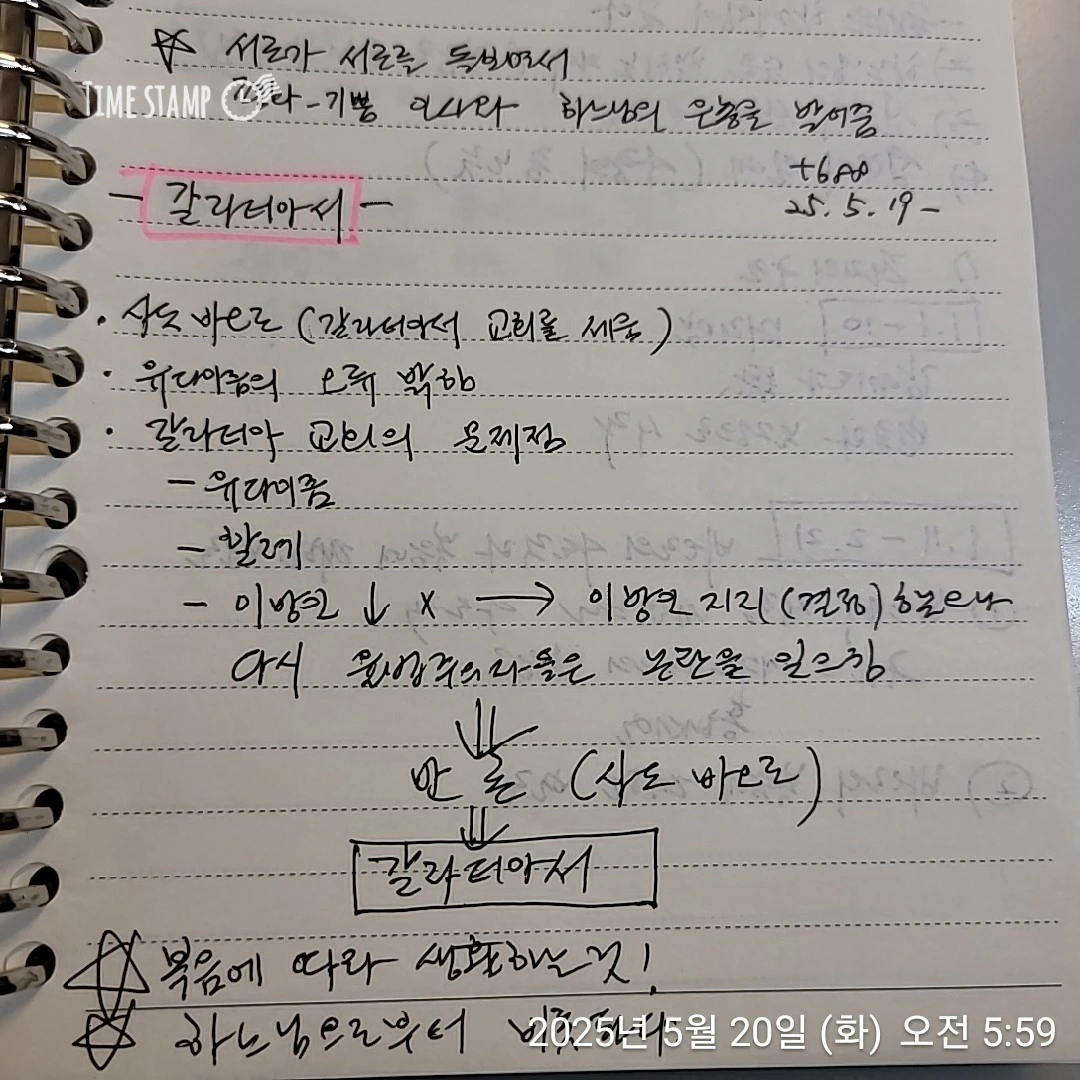 ☆ 서로가 서로를 돋보여서
TIME STAMP
기쁨 인사와 하느님의 은총을 빌어줌
25. 5. 19 -
- 갈라티아서 -
· 사도 바오로 (갈라티아서 교회를 세움)
· 유다이즘의 오류 박하
· 갈라티아 교인의 문제점
- 유다이즘
- 할례
- 이방인 ↓ x → 이방인 지지 (결정) 했으나
다시 율법주의자들은 논란을 일으킴
⇓
반 론 (사도 바오로)
⇓
갈라티아서
☆ 복음에 따라 생활하는 것!
☆ 하느님으로부터
2025년 5월 20일 (화) 오전 5:59